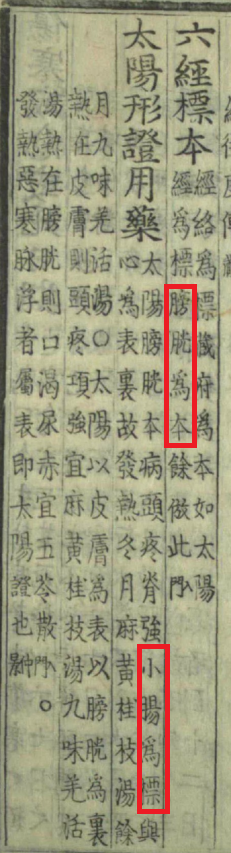 六經標本
經絡爲標臟府爲本如太陽
經爲標膀胱爲本餘倣此入門
太陽形證用藥
太陽膀胱本病頭疼脊強小腸爲標與
心爲表裏故發熱冬月麻黃桂枝湯餘
月九味羌活湯○太陽以皮膚爲表以膀胱爲裏
熱在皮膚則頭疼項強宜麻黃桂枝湯九味羌活
湯熱在膀胱則口渴尿赤宜五苓散入門○
發熱惡寒脉浮者屬表即太陽證也仲景